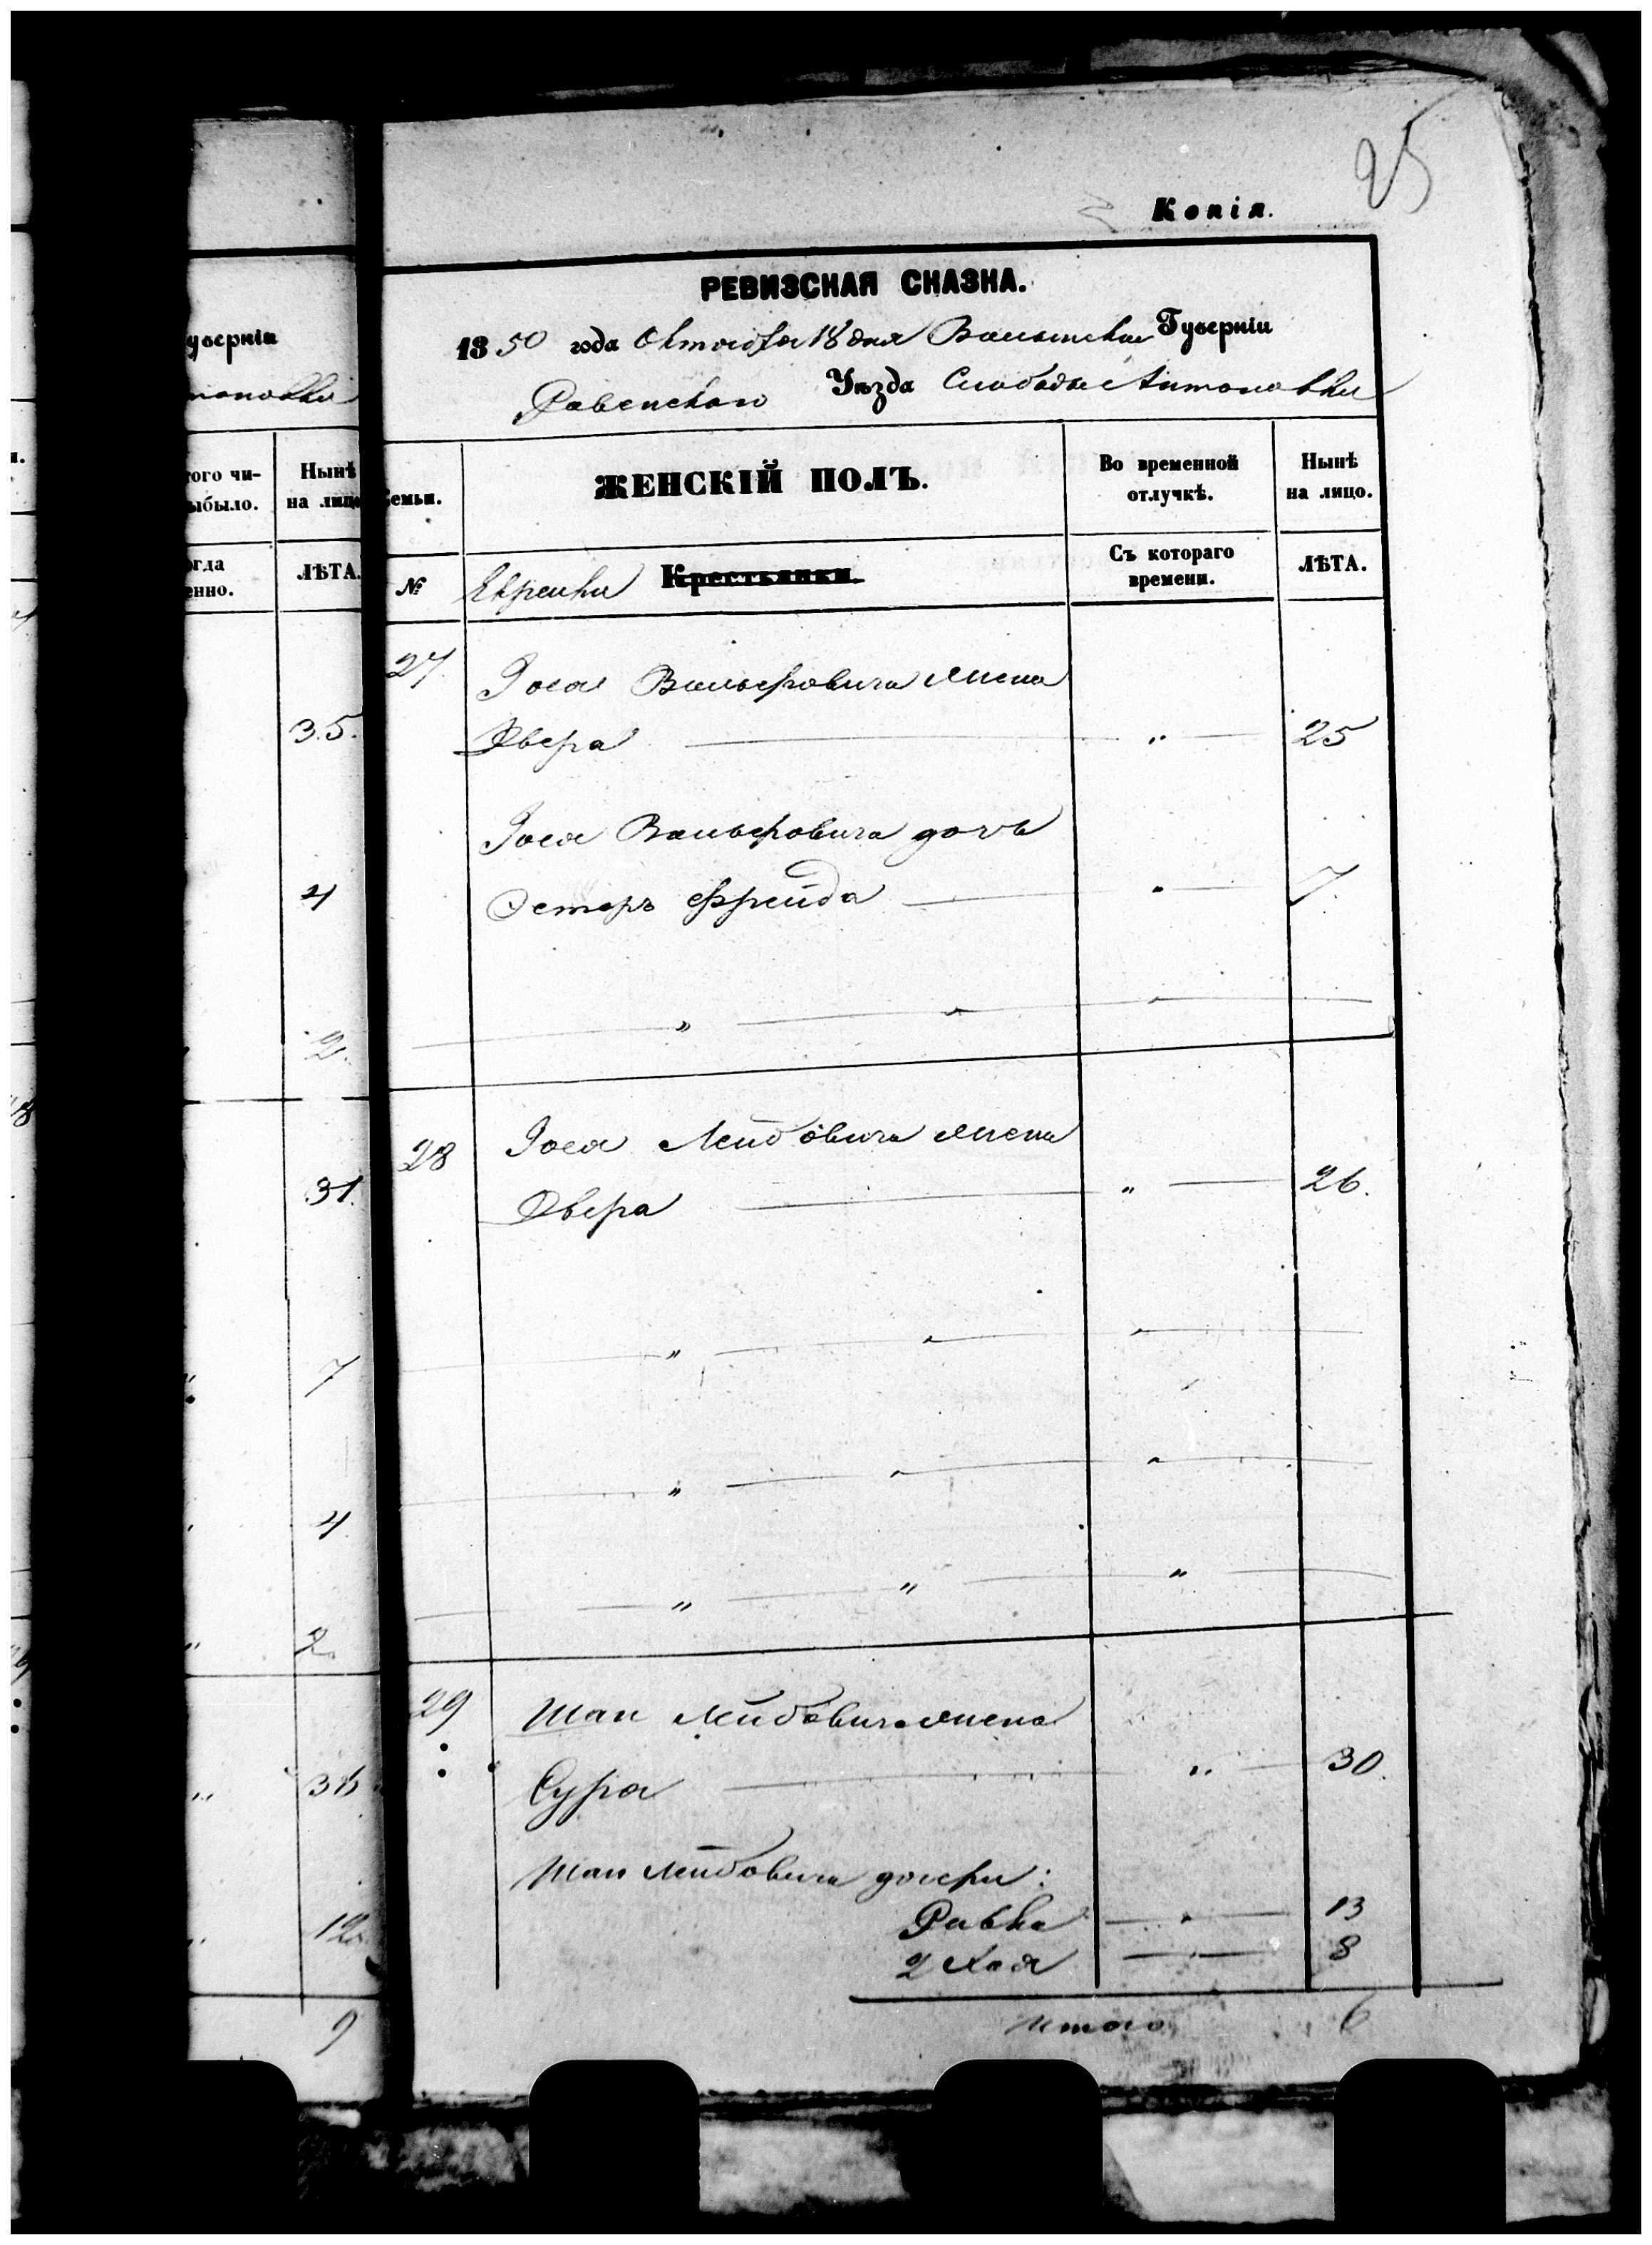 25
Копія.
РЕВИЗСКАЯ СКАЗКА.
1850 года Октября 18 дня Волынской Губерніи
Ровенского Уѣзда Слободы Антоновки
уберніи
тоновки
того чи-
ыбыло.
Нынѣ
на лицо
огда
енно.
ЛѢТА.
35.
4
2.
31.
7
4
2.
36
12
9
Семьи.
ЖЕНСКІЙ ПОЛЪ.
Во временной
отлучкѣ.
Нынѣ
на лицо.
№
Еврейки Крестьянки.
Съ котораго
времени.
ЛѢТА.
27. Іося Вольфовича жена
Двера " 25
Іося Вольфовича дочь
Эстеръ Фрейда " 7.
" " "
28 Іося Лейбовича жена
Двера " 26.
" " "
" " "
" " "
29 Шаи Лейбовича жена
Сура " 30.
Шаи Лейбовича дочери:
Ривка " 13
2 Хая " 8
Итого 6